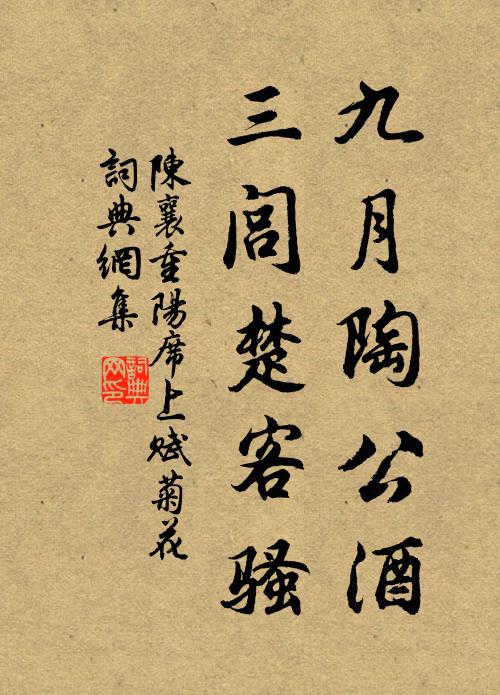 九月陶公酒
三闾楚客骚
陳襄重陽席上赋菊花
詞典網集
詞典
网印